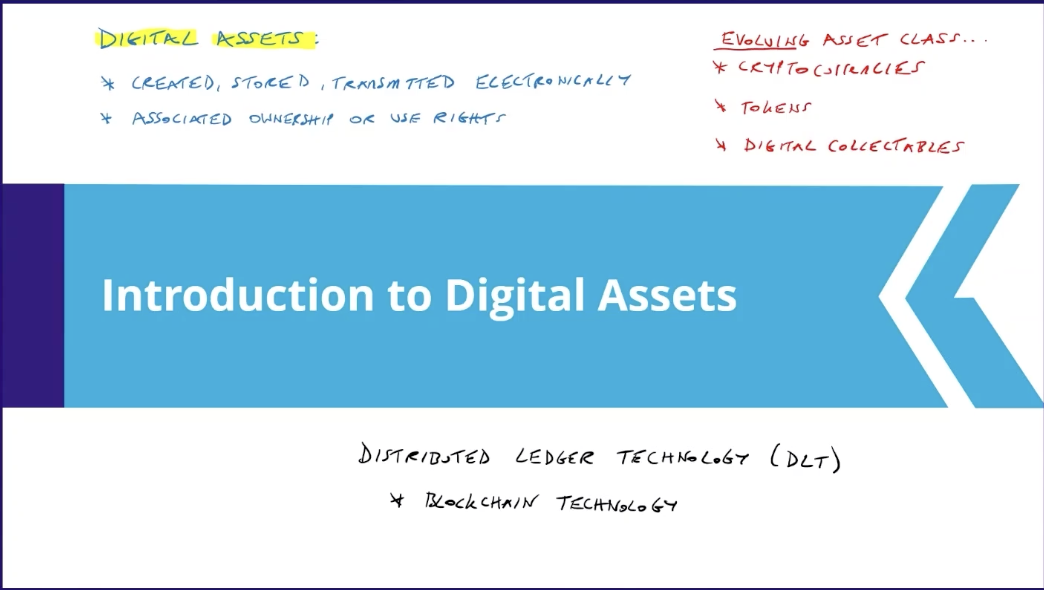 DIGITAL ASSETS:
* CREATED, STORED, TRANSMITTED ELECTRONICALLY
* ASSOCIATED OWNERSHIP OR USE RIGHTS
EVOLVING ASSET CLASS...
* CRYPTOCURRENCIES
* TOKENS
* DIGITAL COLLECTABLES
Introduction to Digital Assets
DISTRIBUTED LEDGER TECHNOLOGY (DLT)
* BLOCKCHAIN TECHNOLOGY